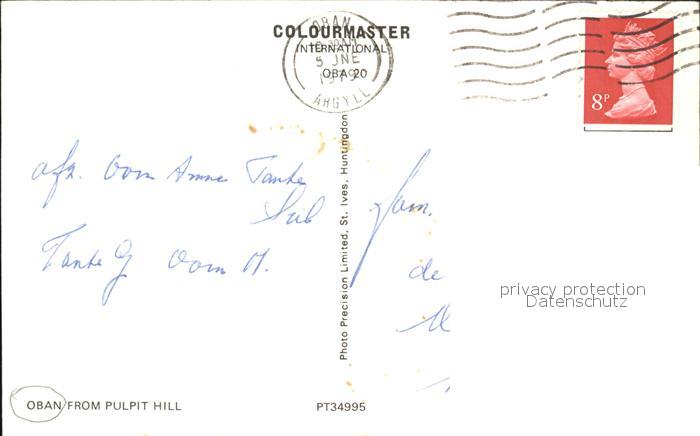 COLOURMASTER
INTERNATIONAL
OBA 20
OBAN
5 JNE
1979
ARGYLL
8P
afz. Oom Tante
Tante G Oom H.
Fam.
de
Photo Precision Limited, St. Ives, Huntingdon
privacy protection
Datenschutz
OBAN FROM PULPIT HILL
PT34995